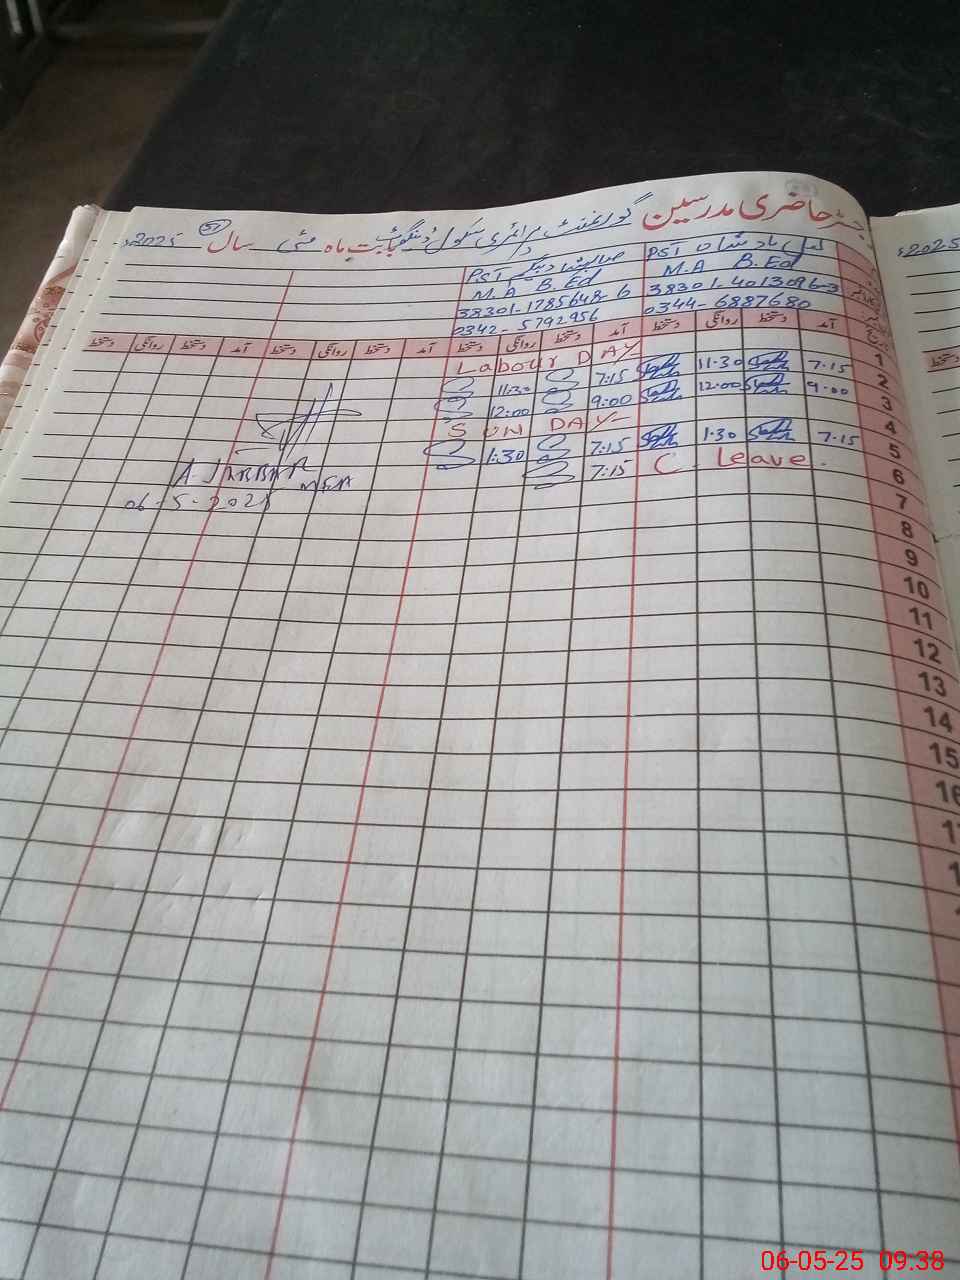 رجسٹر حاضری مدرسین گورنمنٹ پرائمری سکول بابت ماہ مئی سال 2025ء
2025ء
لعل بادشاہ PST
M.A B.Ed
38301-4013096-3
0344-6887680
PST
M.A B.Ed
38301-1785648-6
0342-5792956
آمد دستخط روانگی دستخط آمد دستخط روانگی دستخط آمد دستخط روانگی دستخط آمد دستخط روانگی دستخط
دستخط
1 Labour DAY
2 7:15 11:30 7:15 11:30
3 9:00 12:00 9:00 12:00
4 SUN DAY
5 7:15 1:30 7:15 1:30
6 C. Leave. 7:15
7
8
9
10
11
12
13
14
15
16
A. JABBAR
MEA
06-5-2025
06-05-25 09:38